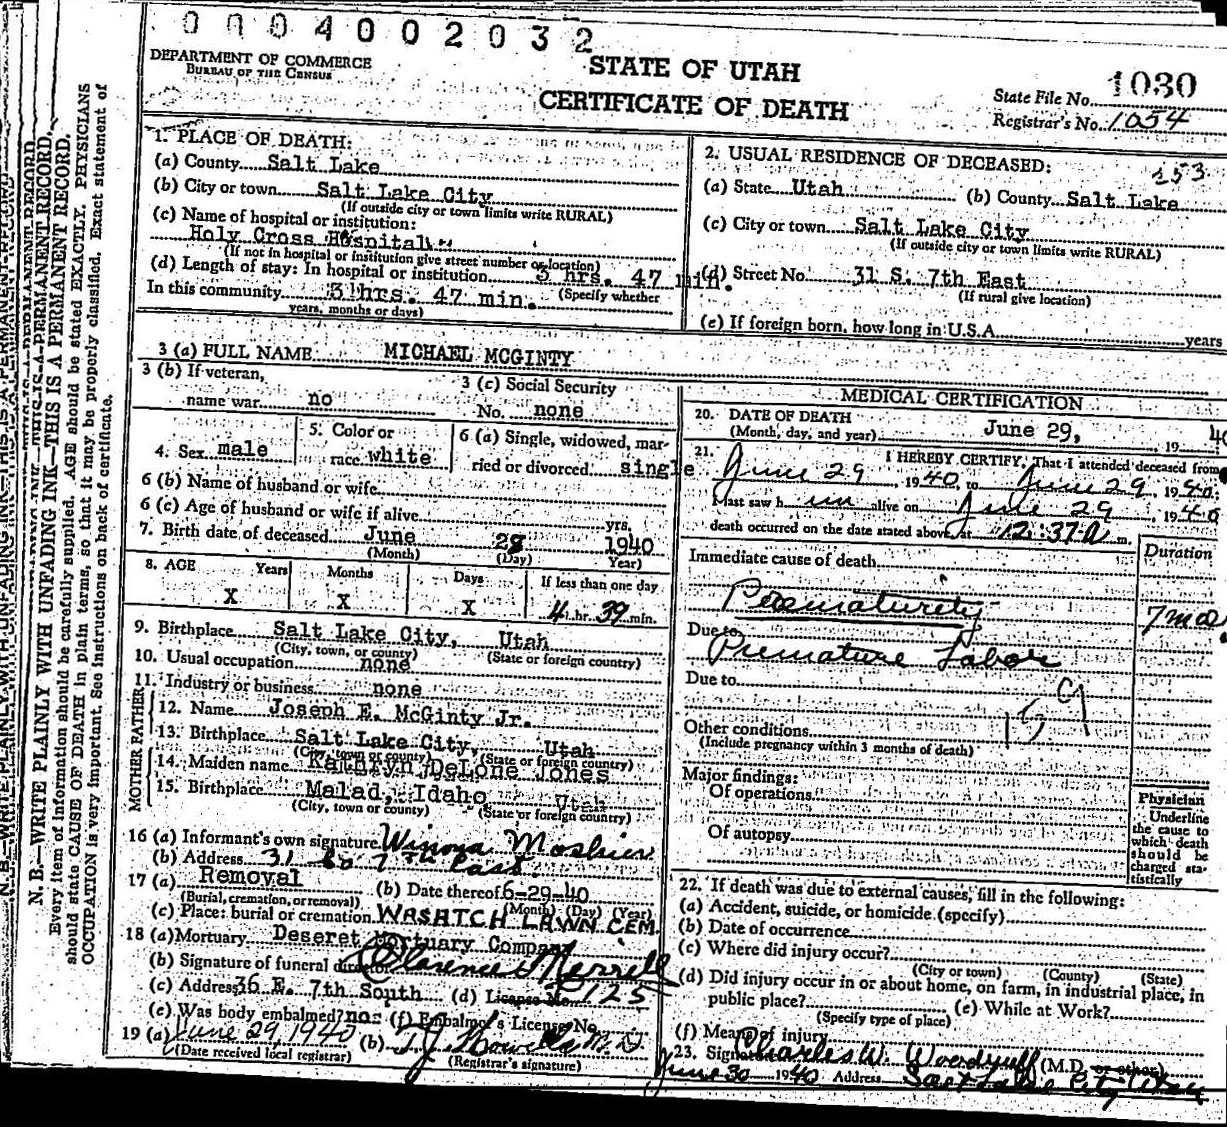 0004002032
DEPARTMENT OF COMMERCE
BUREAU OF THE CENSUS
STATE OF UTAH
CERTIFICATE OF DEATH
State File No. 1030
Registrar's No. 1054
N. B.—WRITE PLAINLY WITH UNFADING INK—THIS IS A PERMANENT RECORD.
Every item of information should be carefully supplied. AGE should be stated EXACTLY. PHYSICIANS
should state CAUSE OF DEATH in plain terms, so that it may be properly classified. Exact statement of
OCCUPATION is very important. See instructions on back of certificate.
1. PLACE OF DEATH:
(a) County Salt Lake
(b) City or town Salt Lake City
(If outside city or town limits write RURAL)
(c) Name of hospital or institution:
Holy Cross Hospital
(If not in hospital or institution give street number or location)
(d) Length of stay: In hospital or institution 3 hrs. 47 min.
In this community 3 hrs. 47 min. (Specify whether
years, months or days)
2. USUAL RESIDENCE OF DECEASED: 253
(a) State Utah (b) County Salt Lake
(c) City or town Salt Lake City
(If outside city or town limits write RURAL)
(d) Street No. 31 S. 7th East
(If rural give location)
(e) If foreign born, how long in U.S.A. years
3 (a) FULL NAME MICHAEL MCGINTY
3 (b) If veteran,
name war no
3 (c) Social Security
No. none
4. Sex male
5. Color or
race white
6 (a) Single, widowed, mar-
ried or divorced single
6 (b) Name of husband or wife
6 (c) Age of husband or wife if alive yrs.
7. Birth date of deceased June 28 1940
(Month) (Day) Year)
8. AGE Years Months Days If less than one day
X X X 4 hr. 39 min.
9. Birthplace Salt Lake City, Utah
(City, town, or county) (State or foreign country)
10. Usual occupation none
11. Industry or business none
FATHER
12. Name Joseph E. McGinty Jr.
13. Birthplace Salt Lake City, Utah
(City, town or county) (State or foreign country)
MOTHER
14. Maiden name Kathryn DeLone Jones
15. Birthplace Malad, Idaho Utah
(City, town or county) (State or foreign country)
16 (a) Informant's own signature Winona Moshier
(b) Address 31 So 7th East.
17 (a) Removal (b) Date thereof 6-29-40
(Burial, cremation, or removal) (Month) (Day) (Year)
(c) Place: burial or cremation WASATCH LAWN CEM.
18 (a) Mortuary Deseret Mortuary Company
(b) Signature of funeral director Clarence Merrill
(c) Address 36 E. 7th South (d) License No. 125
(e) Was body embalmed? no (f) Embalmer's License No.
19 (a) June 29, 1940 (b) T. J. Howells M. D.
(Date received local registrar) (Registrar's signature)
MEDICAL CERTIFICATION
20. DATE OF DEATH
(Month, day, and year) June 29, 19 40
21. I HEREBY CERTIFY, That I attended deceased from
June 29 1940, to June 29, 1940.
I last saw him alive on June 29, 1940
death occurred on the date stated above, at 12:37 A m.
Duration
Immediate cause of death
Prematurity 7 mo.
Due to
Premature Labor
Due to
159
Other conditions
(Include pregnancy within 3 months of death)
Major findings:
Of operations
Of autopsy
Physician
Underline
the cause to
which death
should be
charged sta-
tistically
22. If death was due to external causes, fill in the following:
(a) Accident, suicide, or homicide (specify)
(b) Date of occurrence
(c) Where did injury occur?
(City or town) (County) (State)
(d) Did injury occur in or about home, on farm, in industrial place, in
public place? (e) While at Work?
(Specify type of place)
(f) Means of injury
23. Signature Charles W. Woodruff (M.D. or other)
June 30 1940 Address Salt Lake City Utah